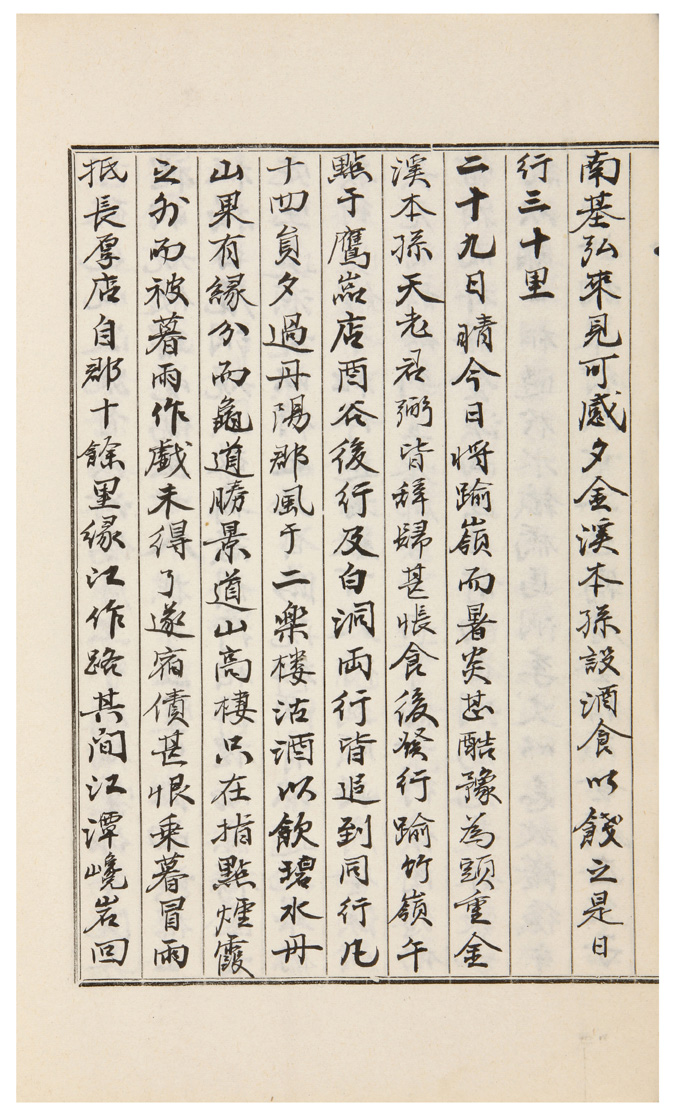 南基弘來見可感夕金溪本孫設酒食以餞之是日
行三十里
二十九日晴今日將踰嶺而暑炎甚酷豫為頭重金
溪本孫天老君弼皆辞歸甚悵食後發行踰竹嶺午
點于鷹岩店酉谷後行及白洞両行皆追到同行凡
十四員夕過丹陽郡風于二樂樓沽酒以飲碧水丹
山果有縁分而龜道勝景道山高棲只在指點烟霞
之外而被暮雨作戱未得了遂宿債甚恨乗暮冒雨
抵長厚店自郡十餘里縁江作路其间江潭巉岩回